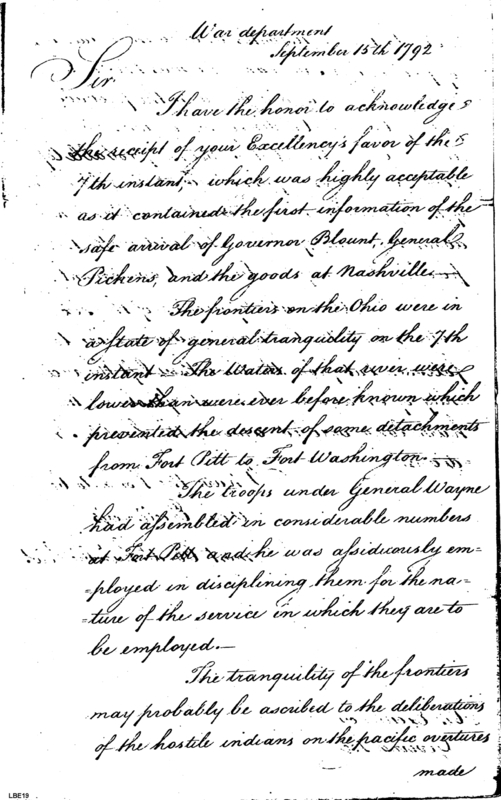 War department
September 15th 1792
Sir
I have the honor to acknowledge
the receipt of your Excellency's favor of the
7th instant, which was highly acceptable
as it contained the first information of the
safe arrival of Governor Blount, General
Pickens, and the goods at Nashville.—
The frontiers on the Ohio were in
a State of general tranquility on the 7th
instant The Waters of that river were
lower than were ever before known which
prevented the descent of some detachments
from Fort Pitt to Fort Washington.—
The troops under General Wayne
had assembled in considerable numbers
at Fort Pitt and he was assiduously em-
-ployed in disciplining them for the na-
-ture of the service in which they are to
be employed.—
The tranquility of the frontiers
may probably be ascribed to the deliberations
of the hostile indians on the pacific overtures
made
LBE19